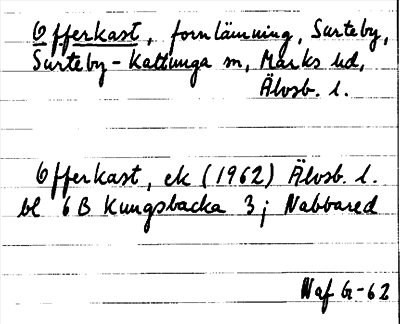 Offerkast, fornlämning, Surteby,
Surteby-Kattunga sn, Marks hd,
Älvsb. l.
Offerkast, ek (1962) Älvsb. l.
bl 6 B Kungsbacka 3 j Nabbared
Naf G-62